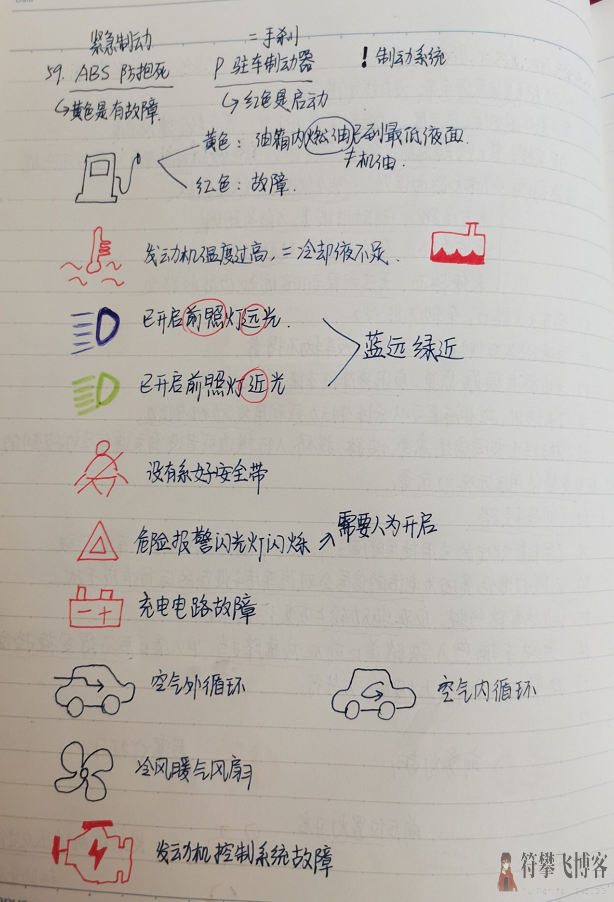 紧急制动 =手刹
59. ABS 防抱死 P 驻车制动器 ! 制动系统
↳黄色是有故障. ↳红色是启动
黄色: 油箱内燃油已到最低液面.
≠机油.
红色: 故障.
发动机温度过高, =冷却液不足.
已开启前照灯远光.
蓝远绿近
已开启前照灯近光
没有系好安全带
危险报警闪光灯闪烁 → 需要人为开启
- +
充电电路故障
空气外循环 空气内循环
冷风暖气风扇
发动机控制系统故障
符攀飞博客